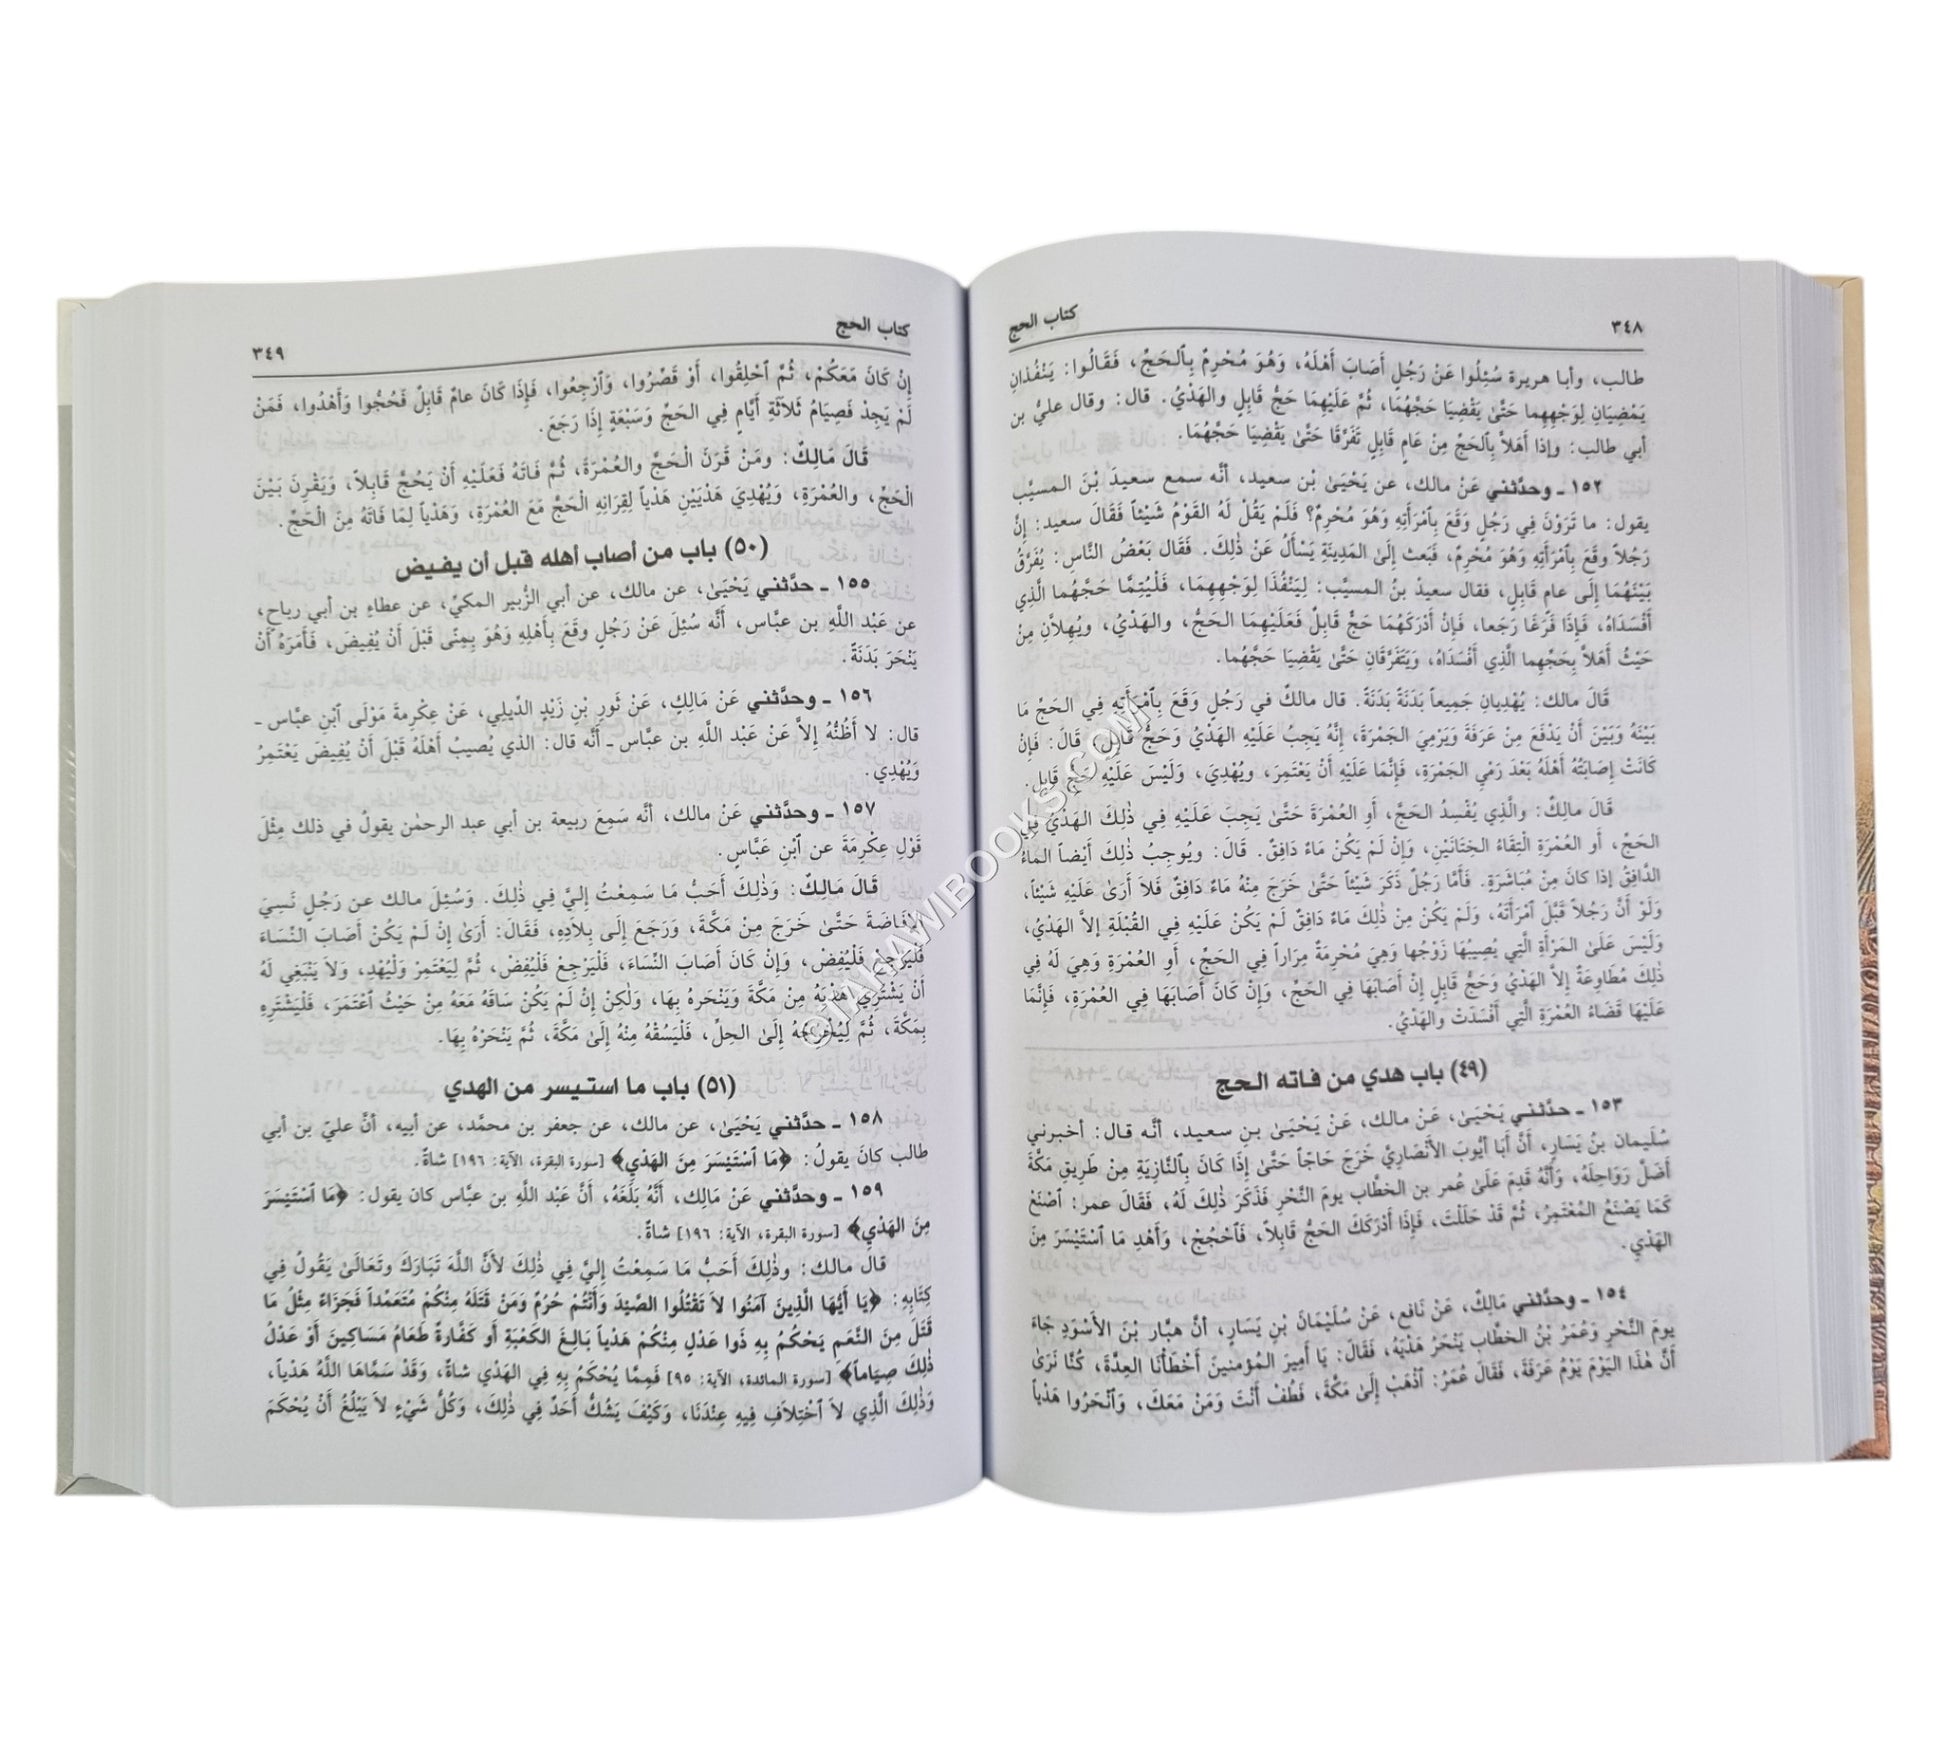 ٣٤٨
كتاب الحج
طالب، وأبا هريرة سُئِلُوا عَنْ رَجُلٍ أَصَابَ أَهْلَهُ، وَهُوَ مُحْرِمٌ بِٱلحَجِّ، فَقَالُوا: يَنْفُذَانِ
يَمْضِيَانِ لِوَجْهِهِمَا حَتَّىٰ يَقْضِيَا حَجَّهُمَا، ثُمَّ عَلَيْهِمَا حَجُّ قَابِلٍ والهَدْيُ. قال: وقال عليُّ بن
أبي طالب: وإذا أَهَلاَّ بِٱلحَجِّ مِنْ عَامٍ قَابِلٍ تَفَرَّقَا حَتَّىٰ يَقْضِيَا حَجَّهُمَا.
١٥٢ ـ وحدَّثني عَنْ مالك، عن يَحْيَىٰ بن سعيد، أنَّه سمع سَعيدَ بْنَ المسيَّب
يقول: ما تَرَوْنَ فِي رَجُلٍ وَقَعَ بِٱمْرَأَتِهِ وَهُوَ مُحْرِمٌ؟ فَلَمْ يَقُلْ لَهُ القَوْمُ شَيْئاً فَقَالَ سعيد: إنَّ
رَجُلاً وَقَعَ بِٱمْرَأَتِهِ وَهُوَ مُحْرِمٌ، فَبَعَثَ إِلَىٰ المَدِينَةِ يَسْأَلُ عَنْ ذٰلِكَ. فَقَال بَعْضُ النَّاسِ: يُفَرَّقُ
بَيْنَهُمَا إِلَى عامٍ قَابِلٍ، فقال سعيدُ بنُ المسيَّب: لِيَنْفُذَا لِوَجْهِهِمَا، فَلْيُتِمَّا حَجَّهُمَا الَّذِي
أَفْسَدَاهُ، فَإِذَا فَرَغَا رَجَعا، فَإِنْ أَدْرَكَهُمَا حَجُّ قَابِلٌ فَعَلَيْهِمَا الحَجُّ، والهَدْيُ، ويُهِلاَّنِ مِنْ
حَيْثُ أَهَلاَّ بِحَجِّهِما الَّذِي أَفْسَدَاهُ، وَيَتَفَرَّقَانِ حَتَّىٰ يَقْضِيَا حَجَّهُما.
قَالَ مالك: يُهْدِيانِ جَمِيعاً بَدَنَةً بَدَنَةً. قال مالكٌ في رَجُلٍ وَقَعَ بِٱمْرَأَتِهِ فِي الحَجِّ مَا
بَيْنَهُ وَبَيْنَ أَنْ يَدْفَعَ مِنْ عَرَفَةَ وَيَرْمِيَ الجَمْرَةَ، إِنَّهُ يَجِبُ عَلَيْهِ الهَدْيُ وَحَجُّ قَابِلٍ، قَالَ: فَإِنْ
كَانَتْ إِصَابَتُهُ أَهْلَهُ بَعْدَ رَمْيِ الجَمْرَةِ، فَإِنَّمَا عَلَيْهِ أَنْ يَعْتَمِرَ، ويُهْدِيَ، وَلَيْسَ عَلَيْهِ حَجُّ قَابِلٍ.
قَالَ مَالِكٌ: والَّذِي يُفْسِدُ الحَجَّ، أَوِ العُمْرَةَ حَتَّىٰ يَجِبَ عَلَيْهِ فِي ذٰلِكَ الهَدْيُ فِي
الحَجِّ، أَوِ العُمْرَةِ الْتِقَاءُ الخِتَانَيْنِ، وَإِنْ لَمْ يَكُنْ مَاءٌ دَافِقٌ. قَالَ: ويُوجِبُ ذٰلِكَ أَيْضاً الماءُ
الدَّافِقُ إذا كانَ مِنْ مُبَاشَرَةٍ. فَأَمَّا رَجُلٌ ذَكَرَ شَيْئاً حَتَّىٰ خَرَجَ مِنْهُ مَاءٌ دَافِقٌ فَلاَ أَرَىٰ عَلَيْهِ شَيْئاً،
وَلَوْ أَنَّ رَجُلاً قَبَّلَ ٱمْرَأَتَهُ، وَلَمْ يَكُنْ مِنْ ذٰلِكَ مَاءٌ دَافِقٌ لَمْ يَكُنْ عَلَيْهِ فِي القُبْلَةِ إلاَّ الهَدْيُ،
وَلَيْسَ عَلَىٰ المَرْأَةِ الَّتِي يُصِيبُهَا زَوْجُها وَهِيَ مُحْرِمَةٌ مِرَاراً فِي الحَجِّ، أَوِ العُمْرَةِ وَهِيَ لَهُ فِي
ذٰلِكَ مُطَاوِعَةٌ إلاَّ الهَدْيُ وَحَجُّ قابِلٍ إِنْ أَصَابَهَا فِي الحَجِّ، وَإِنْ كَانَ أَصَابَهَا فِي العُمْرَةِ، فَإِنَّمَا
عَلَيْهَا قَضَاءُ العُمْرَةِ الَّتِي أَفْسَدَتْ والهَدْيُ.
(٤٩) باب هدي من فاته الحج
١٥٣ ـ حدَّثني يَحْيَىٰ، عَنْ مالك، عَنْ يَحْيَىٰ بنِ سعيد، أنَّه قال: أخبرني
سُلَيمان بنُ يَسَارٍ، أَنَّ أَبَا أَيُّوبَ الأَنْصَارِيَّ خَرَجَ حَاجّاً حَتَّىٰ إِذَا كَانَ بِالنَّازِيَةِ مِنْ طَرِيقِ مَكَّةَ
أَضَلَّ رَوَاحِلَهُ، وَأَنَّهُ قَدِمَ عَلَىٰ عُمر بن الخطَّاب يومَ النَّحْرِ فَذَكَرَ ذٰلِكَ لَهُ، فَقَالَ عمر: ٱصْنَعْ
كَمَا يَصْنَعُ المُعْتَمِرُ، ثُمَّ قَدْ حَلَلْتَ، فَإِذَا أَدْرَكَكَ الحَجُّ قَابِلاً، فَٱحْجُجْ، وَأَهْدِ مَا ٱسْتَيْسَرَ مِنَ
الهَدْيِ.
١٥٤ ـ وحدَّثني مَالِكٌ، عَنْ نَافع، عَنْ سُلَيْمَانَ بْنِ يَسَارٍ، أنَّ هبَّار بْنَ الأسْوَدِ جَاءَ
يومَ النَّحْرِ وَعُمَرُ بْنُ الخطَّاب يَنْحَرُ هَدْيَهُ، فَقَالَ: يَا أَمِيرَ المُؤمِنينَ أَخْطَأْنَا العِدَّةَ، كُنَّا نَرَىٰ
أَنَّ هٰذَا اليَوْمَ يَوْمُ عَرَفَةَ، فَقَالَ عُمَرُ: ٱذْهَبْ إِلَىٰ مَكَّةَ، فَطُفْ أَنْتَ وَمَنْ مَعَكَ، وَٱنْحَرُوا هَدْياً
كتاب الحج
٣٤٩
إِنْ كَانَ مَعَكُمْ، ثُمَّ ٱحْلِقُوا، أَوْ قَصِّرُوا، وَٱرْجِعُوا، فَإِذَا كَانَ عامٌ قَابِلٌ فَحُجُّوا وَأَهْدُوا، فَمَنْ
لَمْ يَجِدْ فَصِيَامُ ثَلاَثَةِ أَيَّامٍ فِي الحَجِّ وَسَبْعَةٍ إِذَا رَجَعَ.
قَالَ مَالِكٌ: ومَنْ قَرَنَ الْحَجَّ والعُمْرَةَ، ثُمَّ فَاتَهُ فَعَلَيْهِ أَنْ يَحُجَّ قَابِلاً، وَيَقْرِنَ بَيْنَ
الْحَجِّ، والعُمْرَةِ، وَيُهْدِيَ هَدْيَيْنِ هَدْياً لِقِرَانِهِ الْحَجَّ مَعَ العُمْرَةِ، وَهَدْياً لِمَا فَاتَهُ مِنَ الْحَجِّ.
(٥٠) باب من أصاب أهله قبل أن يفيض
١٥٥ ـ حدَّثني يَحْيَىٰ، عن مالك، عن أبي الزُّبير المكيِّ، عن عطاءِ بن أبي رباح،
عن عَبْد اللَّهِ بن عبَّاس، أَنَّه سُئِلَ عَنْ رَجُلٍ وقَعَ بِأَهْلِهِ وَهُوَ بِمِنًى قَبْلَ أَنْ يُفِيضَ، فَأَمَرَهُ أَنْ
يَنْحَرَ بَدَنَةً.
١٥٦ ـ وحدَّثني عَنْ مَالِكٍ، عَنْ ثَورِ بْنِ زَيْدٍ الدِّيلِي، عَنْ عِكْرِمَةَ مَوْلَى ٱبْنِ عبَّاس ـ
قال: لا أَظُنُّهُ إِلاَّ عَنْ عَبْد اللَّه بن عبَّاس ـ أنَّه قال: الذي يُصيبُ أَهْلَهُ قَبْلَ أَنْ يُفِيضَ يَعْتَمِرُ
وَيُهْدِي.
١٥٧ ـ وحدَّثني عَنْ مالك، أنَّه سَمِعَ ربيعة بن أبي عبد الرحمٰن يقولُ في ذلك مِثْلَ
قَوْلِ عِكْرِمَةَ عن ٱبْنِ عَبَّاسٍ.
قَالَ مَالِكٌ: وَذٰلِكَ أَحَبُّ مَا سَمِعْتُ إِلَيَّ فِي ذٰلِكَ. وَسُئِلَ مالك عن رَجُلٍ نَسِيَ
الإفَاضَةَ حَتَّىٰ خَرَجَ مِنْ مَكَّةَ، وَرَجَعَ إِلَى بِلاَدِهِ، فَقَالَ: أَرَىٰ إِنْ لَمْ يَكُنْ أَصَابَ النِّسَاءَ
فَلْيَرْجِعْ فَلْيُفِضْ، وَإِنْ كَانَ أَصَابَ النِّسَاءَ، فَلْيَرْجِعْ فَلْيُفِضْ، ثُمَّ لِيَعْتَمِرْ وَلْيُهْدِ، وَلاَ يَنْبَغِي لَهُ
أَنْ يَشْتَرِيَ هَدْيَهُ مِنْ مَكَّةَ وَيَنْحَرهُ بِهَا، وَلٰكِنْ إِنْ لَمْ يَكُنْ سَاقَهُ مَعَهُ مِنْ حَيْثُ ٱعْتَمَرَ، فَلْيَشْتَرِهِ
بِمَكَّةَ، ثُمَّ لِيُخْرِجْهُ إِلَىٰ الحِلِّ، فَلْيَسُقْهُ مِنْهُ إِلَىٰ مَكَّةَ، ثُمَّ يَنْحَرُهُ بِهَا.
(٥١) باب ما استيسر من الهدي
١٥٨ ـ حدَّثني يَحْيَىٰ، عن مالك، عن جعفر بن محمَّد، عن أبيه، أنَّ عليَّ بن أبي
طالب كانَ يقولُ: ﴿مَا ٱسْتَيْسَرَ مِنَ الهَدْيِ﴾ [سورة البقرة، الآية: ١٩٦] شاةٌ.
١٥٩ ـ وحدَّثني عَنْ مَالِكٍ، أَنَّهُ بَلَغَهُ، أَنَّ عَبْدَ اللَّهِ بن عبَّاس كان يقول: ﴿مَا ٱسْتَيْسَرَ
مِنَ الهَدْيِ﴾ [سورة البقرة، الآية: ١٩٦] شاةٌ.
قال مالك: وذٰلِكَ أَحَبُّ مَا سَمِعْتُ إِليَّ فِي ذٰلِكَ لأَنَّ اللَّهَ تَبَارَكَ وَتَعَالَىٰ يَقُولُ فِي
كِتَابِهِ: ﴿يَا أَيُّهَا الَّذِينَ آمَنُوا لاَ تَقْتُلُوا الصَّيْدَ وَأَنْتُمْ حُرُمٌ وَمَنْ قَتَلَهُ مِنْكُمْ مُتَعَمِّداً فَجَزَاءٌ مِثْلُ مَا
قَتَلَ مِنَ النَّعَمِ يَحْكُمُ بِهِ ذَوا عَدْلٍ مِنْكُمْ هَدْياً بَالِغَ الكَعْبَةِ أَو كَفَّارَةٌ طَعَامُ مَسَاكِينَ أَوْ عَدْلُ
ذٰلِكَ صِيَاماً﴾ [سورة المائدة، الآية: ٩٥] فَمِمَّا يُحْكَمُ بِهِ فِي الهَدْيِ شاةٌ، وَقَدْ سَمَّاهَا اللَّهُ هَدْياً،
وَذٰلِكَ الَّذِي لاَ ٱخْتِلاَفَ فِيهِ عِنْدَنَا، وَكَيْفَ يَشُكُّ أَحَدٌ فِي ذٰلِكَ، وَكُلُّ شَيْءٍ لاَ يَبْلُغُ أَنْ يُحْكَمَ